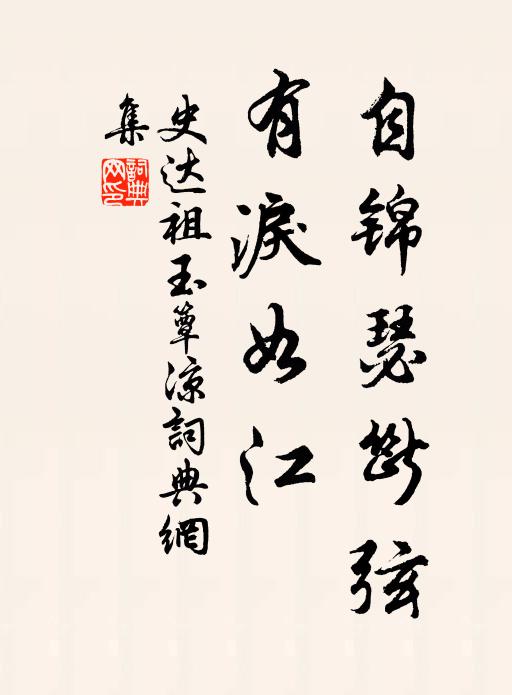 自锦瑟断弦
有淚如江
史达祖玉簟凉詞典網
集
詞典
网印